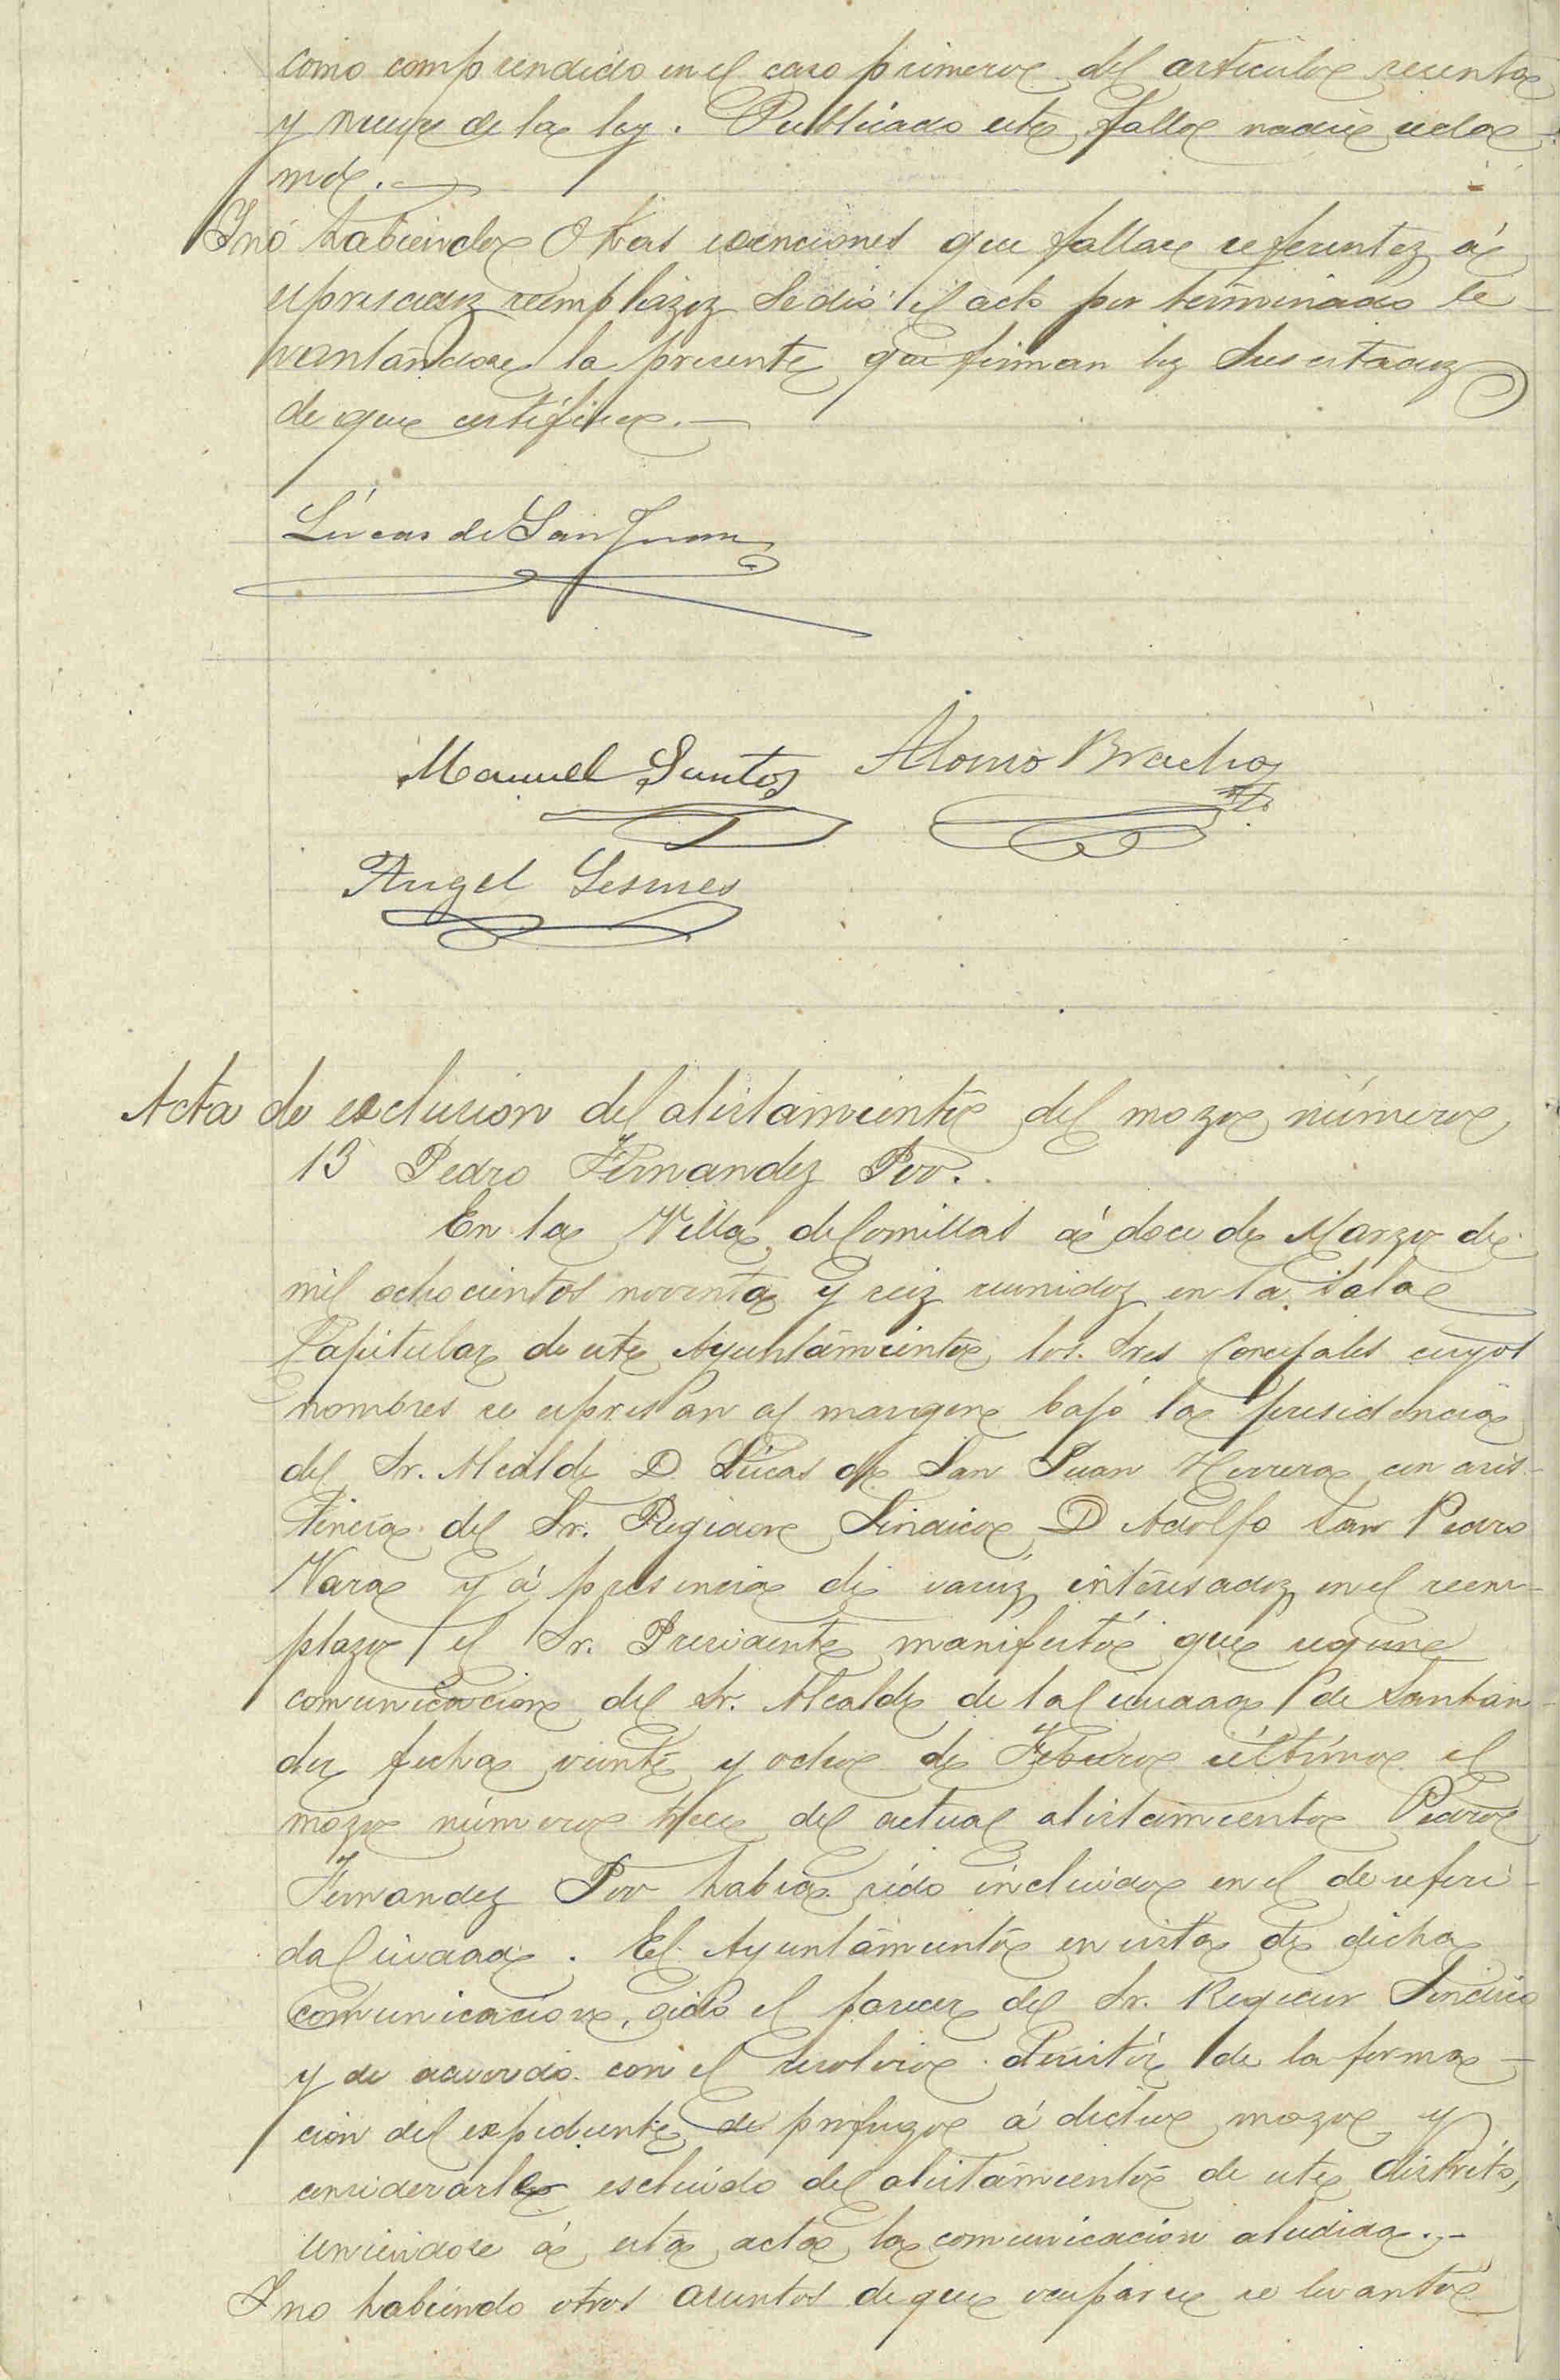 como comprendido en el caso primero del articulo sesenta
y nueve de la ley. Publicado este fallo nadie recla-
mó.
Y no habiendo otras esenciones que fallar referentes á
espresados reemplazos se dió el acto por terminado le-
vantandose la presente que firman los Sres citados
de que certifico.
Lúcas de San Juan
Manuel Santos Alonso Bracho
Angel Lesmes
Acta de esclusion del alistamiento del mozo número
13 Pedro Fernandez Poo.
En la Villa de Comillas á doce de Marzo de
mil ochocientos noventa y seis reunidos en la Sala
Capitular de este Ayuntamiento los Sres Concejales cuyos
nombres se espresan al margen bajo la presidencia
del Sr. Alcalde D. Lúcas de San Juan Herrera con asis-
tencia del Sr. Regidor Sindico D Adolfo San Pedro
Vara y á presencia de varios interesados en el reem-
plazo el Sr. Presidente manifestó que segun
comunicacion del Sr. Alcalde de la Ciudad de Santan-
der fecha veinte y ocho de Febrero último el
mozo número trece del actual alistamiento Pedro
Fernandez Poo habia sido incluido en el de referi-
da Ciudad. El Ayuntamiento en vista de dicha
comunicacion, oido el parecer del Sr. Regidor Sindico
y de acuerdo con el resolvio desistir de la forma-
cion del expediente de profugo á dicho mozo y
considerarle escluido del alistamiento de este distrito,
uniendose á esta acta la comunicacion aludida.
Y no habiendo otros asuntos de que ocuparse se levantó